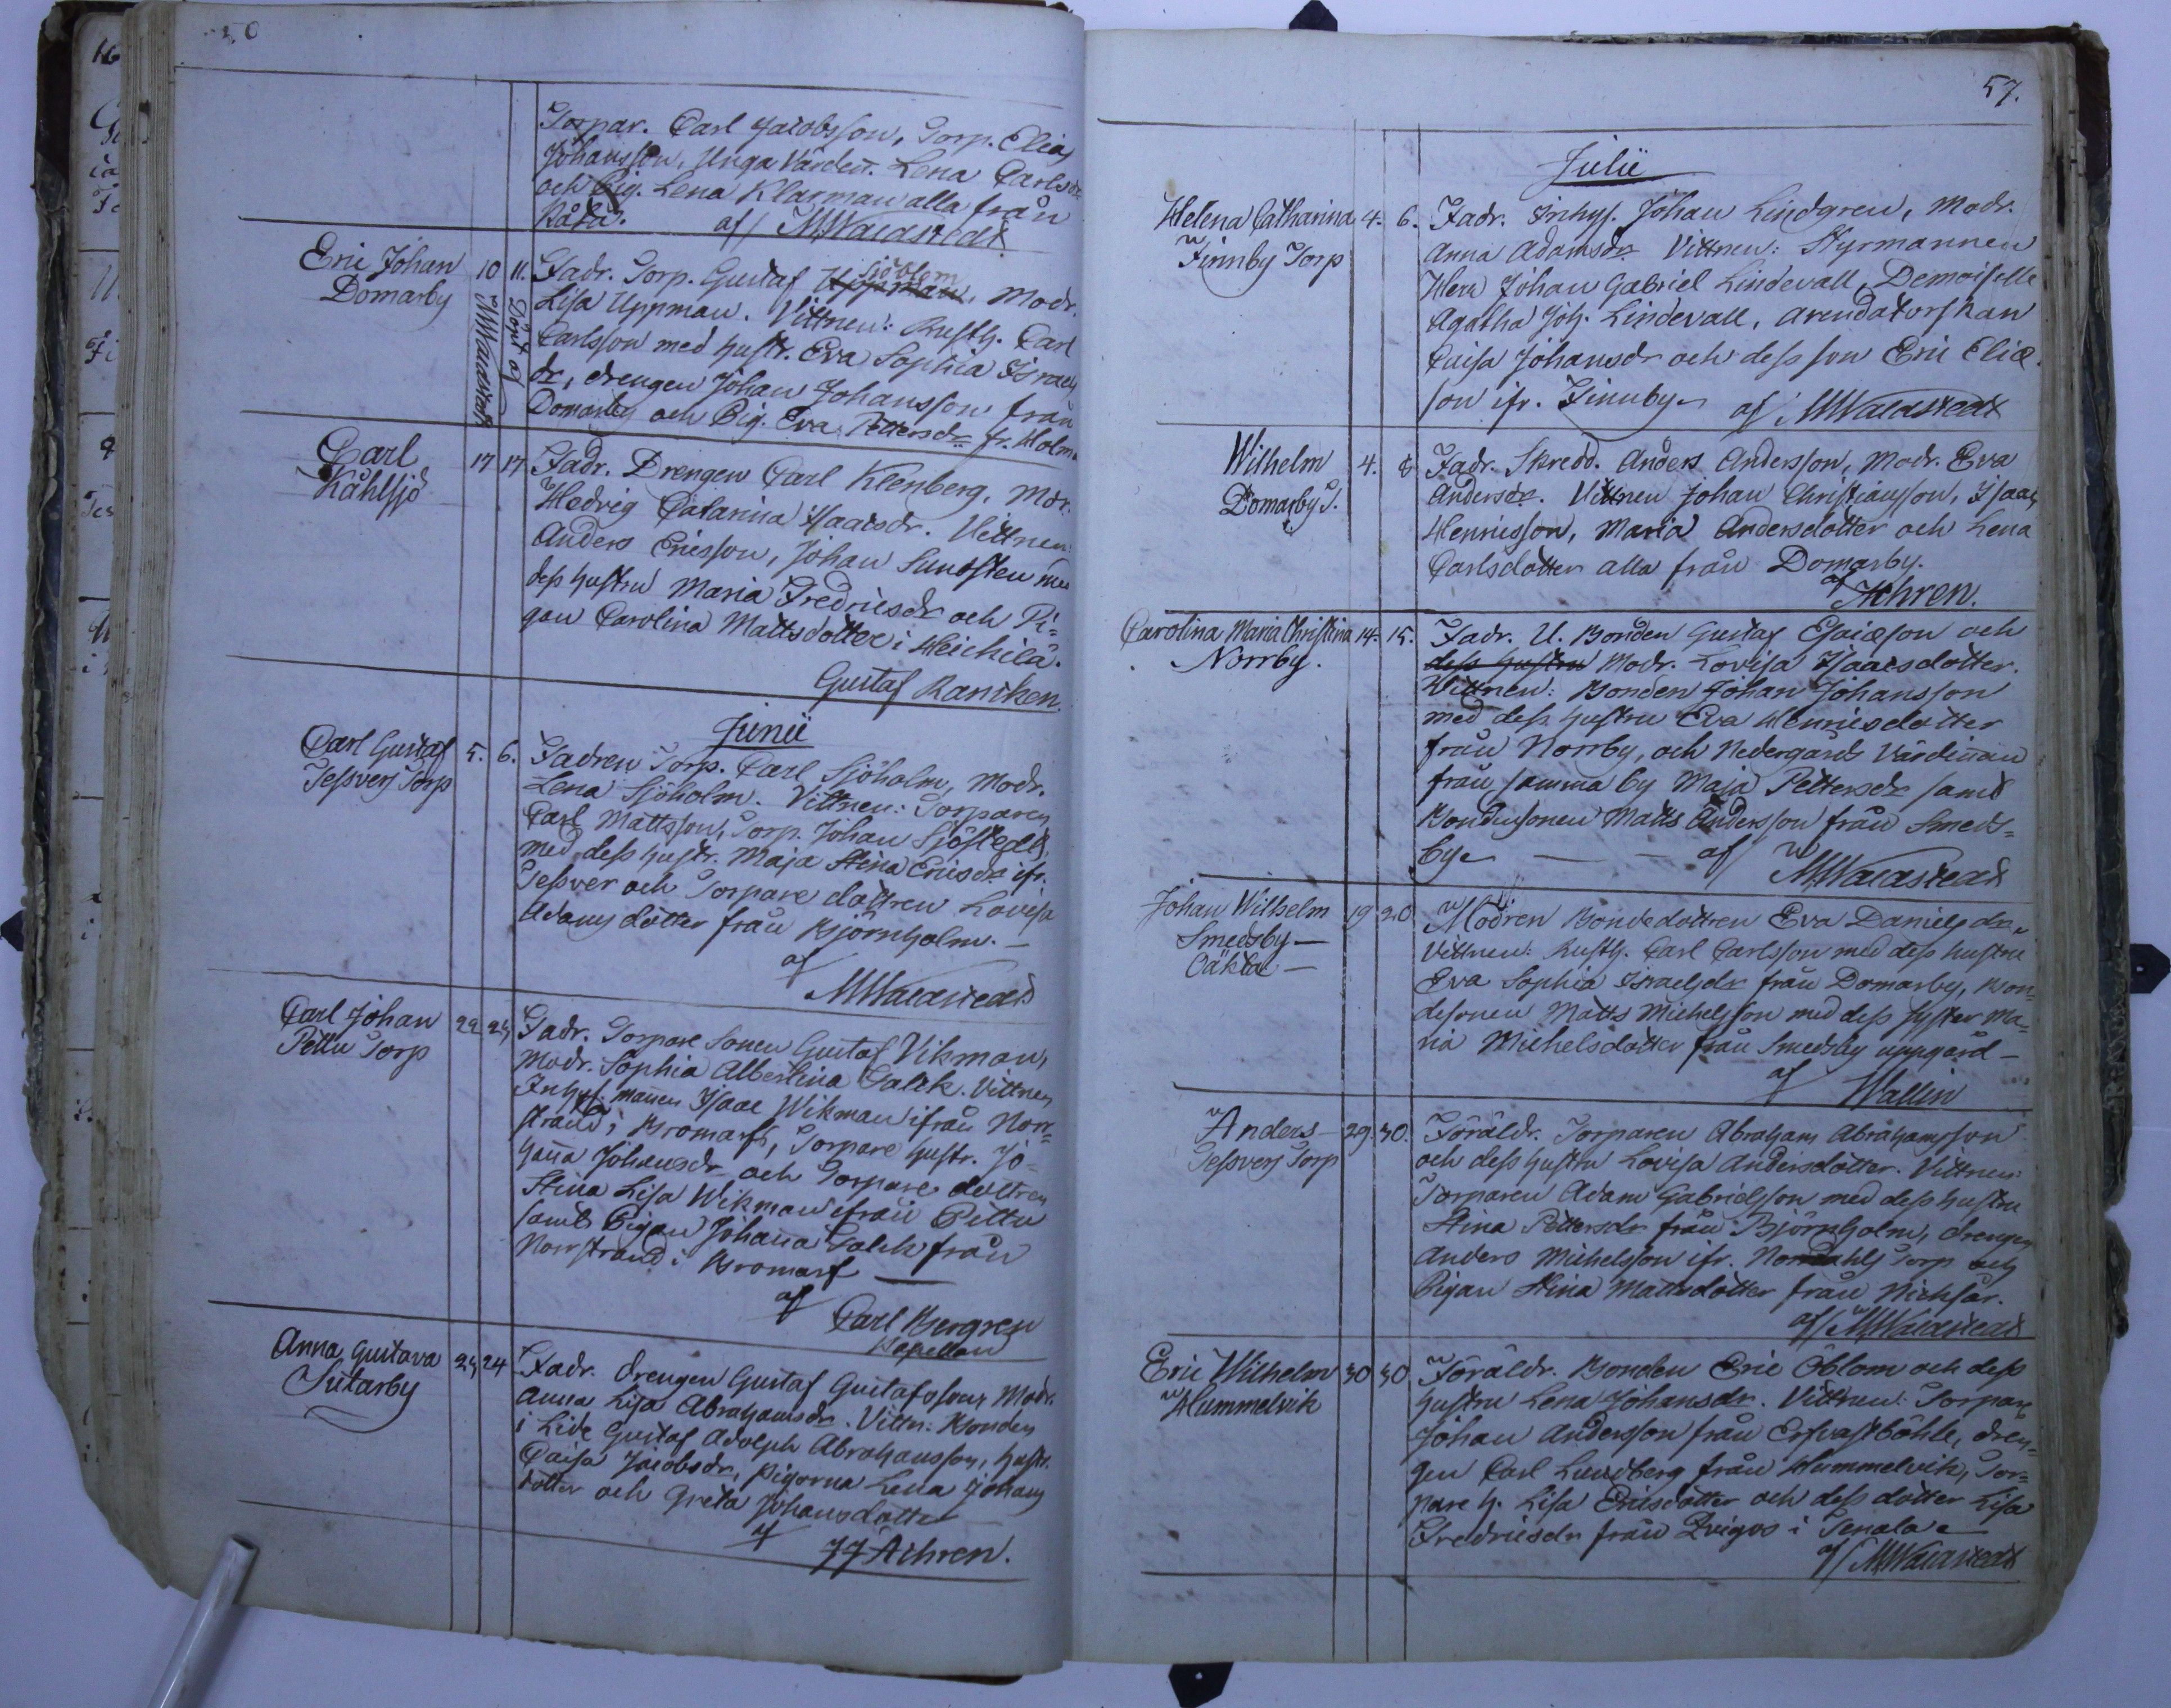 Torpar. Carl Jacobsson, Torp. Elias
Johansson, Unga Värdin. Lena Carlsdr
och Pig. Lena Klarman alla från
Råtu. af MWaldstedt
Eric Johan 10 11. Fadr. Torp. Gustaf Uppman, Sjöblom Modr.
Domarby Döpt af MWaldstedt Lisa Uppman. Vittnen: Rusth. Carl
Carlsson med hustr. Eva Sophia Israels
dr, drengen Johan Johansson från
Domarby och Pig. Eva Pettersdr fr. Holm
Carl 17 17 Fadr. Drengen Carl Klenberg, Mor.
Kåhlsjö Hedvig Catarina Isaacsdr. Vittnen:
Anders Ericsson, Johan Sundsten med
dess hustru Maria Fredricsdr och Pi=
gan Carolina Mattsdotter i Heickilä.
Gustaf Rancken.
Junii
Carl Gustaf 5. 6. Fadren Torp. Carl Sjöholm, Modr.
Tessvers Torp Lena Sjöholm. Vittnen: Torparen
Carl Mattsson, Torp. Johan Sjöstedt
med dess hustr. Maja Stina Ericsdr ifr.
Tessver och Torpare dottren Lovisa
Adamsdotter från Björnholm. —
af
MWaldstedt
Carl Johan 22 23 Fadr. Torpare Sonen Gustaf Vikman,
Pettu Torp Modr. Sophia Albertina Falck. Vittnen
Inhys. mannen Isaac Wikman ifrån Norr=
strand i Bromarf, Torpare hustr. Jo=
hanna Johansdr och Torpare dottren
Stina Lisa Wikman ifrån Pettu
samt Pigan Johanna Falck från
Norrstrand i Bromarf —
af
Carl Bergren
Kapellan
Anna Gustava 23 24 Fadr. drengen Gustaf Gustafsson, Modr.
Sutarby Anna Lisa Abrahamsdr. Vittn: Bonden
i Lide Gustaf Adolph Abrahamsson, hustr.
Caisa Jacobsdr, pigorna Lena Johans
dotter och Greta Johansdotter
af JJ Achren.
57.
Julii
Helena Catharina 4. 6. Fadr. Inhys. Johan Lindgren, Modr.
Finnby Torp Anna Adamsdr Vittnen: Styrmannen
Herr Johan Gabriel Lindevall, Demoiselle
Agatha Joh. Lindevall, arendatorskan
Caisa Johansdr och dess son Eric Eliæ.
son ifr. Finnby af MWaldstedt
Wilhelm 4. 8 Fadr. Skredd. Anders Andersson, Modr. Eva
Domarby T. Andersdr. Vittnen Johan Christiansson, Isaac
Henricsson, Maria Andersdotter och Lena
Carlsdotter alla från Domarby.
af Achren.
Carolina Maria Christina 14. 15. Fadr. U. Bonden Gustaf Esaiæson och
Norrby. dess hustru Modr. Lovisa Isaacsdotter.
Wittnen: Bonden Johan Johansson
med dess hustru Eva Henricsdotter
från Norrby, och Nedergards Värdinnan
från samma by Maja Pettersdr samt
Bondesonen Matts Andersson från Smeds=
by — — af MWaldstedt
Johan Wilhelm 19 20 Modren Bondedottren Eva Danielsdr.
Smedsby — Vittnen: Rusth. Carl Carlsson med dess hustru
Oäkta — Eva Sophia Israelsdr från Domarby, Bon=
desonen Matts Michelsson med dess syster Ma=
ria Michelsdotter från Smedsby uppgård —
af Wallin
Anders — 29. 30. Föräldr. Torparen Abraham Abrahamsson
Tessvers Torp och dess hustru Lovisa Andersdotter. Vittnen:
Torparen Adam Gabrielsson med dess hustru
Stina Pettersdr från Björnholm, drengen
Anders Michelsson ifr. Norrdahls Torp och
Pigan Stina Mattsdotter från Nickfar.
af MWaldstedt
Eric Wilhelm 30 30 Föräldr. Bonden Eric Öblom och dess
Hummelvik hustru Lena Johansdr. Vittnen: Torpare
Johan Andersson från Erfvastböhle, dren=
gen Carl Lundberg från Hummelvik, Tor=
pare h. Lisa Ericsdotter och dess dotter Lisa
Fredricsdr från i Tenala
af MWaldstedt